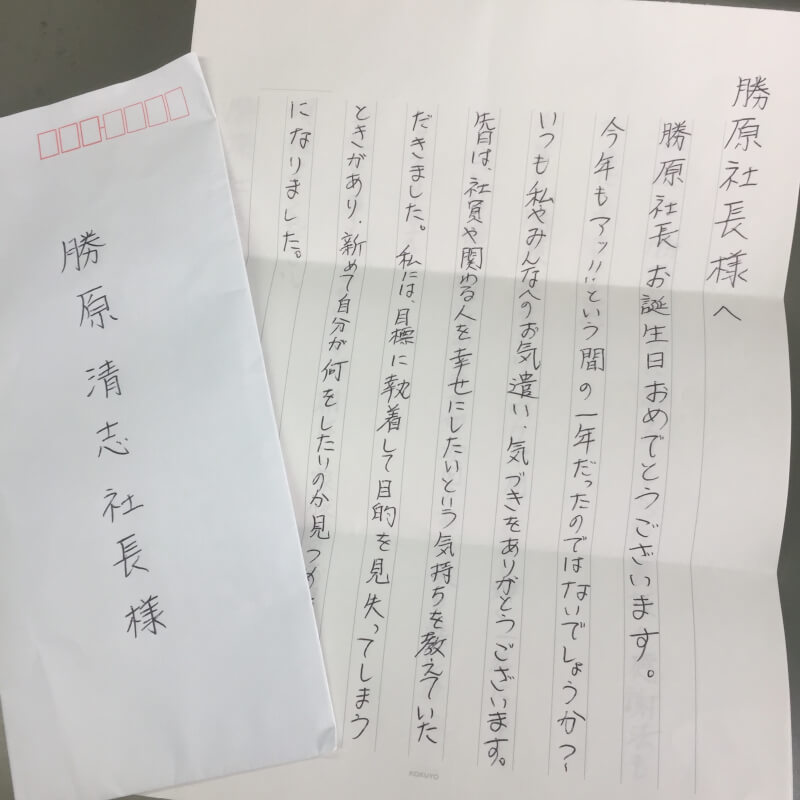 勝原社長様へ
勝原社長 お誕生日おめでとうございます。
今年もアッ!!という間の一年だったのではないでしょうか?
いつも私やみんなへのお気遣い、気づきをありがとうございます。
先日は、社員や関わる人を幸せにしたいという気持ちを教えていた
だきました。私には、目標に執着して目的を見失ってしまう
ときがあり、新めて自分が何をしたいのか見つめ
になりました。
勝原清志社長様
KOKUYO